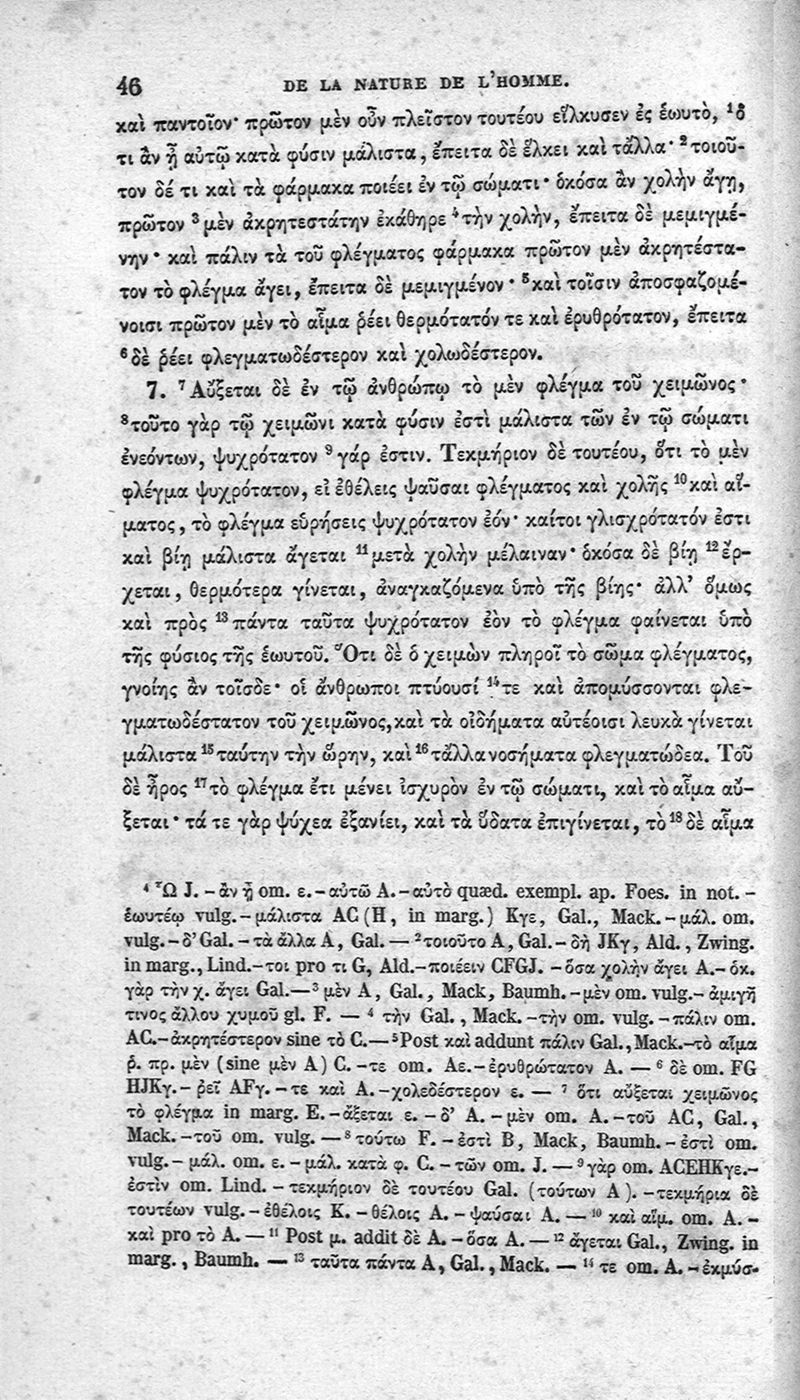 46 DE LA NATURE DE L'HOMME.
καὶ παντοῖον· πρῶτον μὲν οὖν πλεῖστον τουτέου εἵλκυσεν ἐς ἑωυτὸ, ¹ὅ
τι ἂν ᾖ αὐτῷ κατὰ φύσιν μάλιστα, ἔπειτα δὲ ἕλκει καὶ τἄλλα· ²τοιοῦ-
τον δέ τι καὶ τὰ φάρμακα ποιέει ἐν τῷ σώματι· ὁκόσα ἂν χολὴν ἄγῃ,
πρῶτον ³μὲν ἀκρητεστάτην ἐκάθηρε ⁴τὴν χολὴν, ἔπειτα δὲ μεμιγμέ-
νην· καὶ πάλιν τὰ τοῦ φλέγματος φάρμακα πρῶτον μὲν ἀκρητέστα-
τον τὸ φλέγμα ἄγει, ἔπειτα δὲ μεμιγμένον· ⁵καὶ τοῖσιν ἀποσφαζομέ-
νοισι πρῶτον μὲν τὸ αἷμα ῥέει θερμότατόν τε καὶ ἐρυθρότατον, ἔπειτα
⁶δὲ ῥέει φλεγματωδέστερον καὶ χολωδέστερον.
7. ⁷Αὔξεται δὲ ἐν τῷ ἀνθρώπῳ τὸ μὲν φλέγμα τοῦ χειμῶνος·
⁸τοῦτο γὰρ τῷ χειμῶνι κατὰ φύσιν ἐστὶ μάλιστα τῶν ἐν τῷ σώματι
ἐνεόντων, ψυχρότατον ⁹γάρ ἐστιν. Τεκμήριον δὲ τουτέου, ὅτι τὸ μὲν
φλέγμα ψυχρότατον, εἰ ἐθέλεις ψαῦσαι φλέγματος καὶ χολῆς ¹⁰καὶ αἵ-
ματος, τὸ φλέγμα εὑρήσεις ψυχρότατον ἐόν· καίτοι γλισχρότατόν ἐστι
καὶ βίῃ μάλιστα ἄγεται ¹¹μετὰ χολὴν μέλαιναν· ὁκόσα δὲ βίῃ ¹²ἔρ-
χεται, θερμότερα γίνεται, ἀναγκαζόμενα ὑπὸ τῆς βίης· ἀλλ' ὅμως
καὶ πρὸς ¹³πάντα ταῦτα ψυχρότατον ἐὸν τὸ φλέγμα φαίνεται ὑπὸ
τῆς φύσιος τῆς ἑωυτοῦ. Ὅτι δὲ ὁ χειμὼν πληροῖ τὸ σῶμα φλέγματος,
γνοίης ἂν τοῖσδε· οἱ ἄνθρωποι πτύουσί ¹⁴τε καὶ ἀπομύσσονται φλε-
γματωδέστατον τοῦ χειμῶνος, καὶ τὰ οἰδήματα αὐτέοισι λευκὰ γίνεται
μάλιστα ¹⁵ταύτην τὴν ὥρην, καὶ ¹⁶τἄλλα νοσήματα φλεγματώδεα. Τοῦ
δὲ ἦρος ¹⁷τὸ φλέγμα ἔτι μένει ἰσχυρὸν ἐν τῷ σώματι, καὶ τὸ αἷμα αὔ-
ξεται· τά τε γὰρ ψύχεα ἐξανίει, καὶ τὰ ὕδατα ἐπιγίνεται, τὸ ¹⁸δὲ αἷμα
¹ Ὧ J. – ἂν ᾖ om. ε. – αὐτῶ A. – αὐτὸ quæd. exempl. ap. Foes. in not. –
ἑωυτέῳ vulg. – μάλιστα AC (H, in marg.) Kγε, Gal., Mack. – μάλ. om.
vulg. – δ' Gal. – τὰ ἄλλα A, Gal. — ² τοιοῦτο A, Gal. – δὴ JKγ, Ald., Zwing.
in marg., Lind. – τοι pro τι G, Ald. – ποιέειν CFGJ. – ὅσα χολὴν ἄγει A. – ὁκ.
γὰρ τὴν χ. ἄγει Gal. — ³ μὲν A, Gal., Mack, Baumh. – μὲν om. vulg. – ἀμιγῆ
τινος ἄλλου χυμοῦ gl. F. — ⁴ τὴν Gal., Mack. – τὴν om. vulg. – πάλιν om.
AC. – ἀκρητέστερον sine τὸ C. — ⁵ Post καὶ addunt πάλιν Gal., Mack. – τὸ αἷμα
ῥ. πρ. μὲν (sine μὲν A) C. – τε om. Aε. – ἐρυθρώτατον A. — ⁶ δὲ om. FG
HJKγ. – ῥεῖ AFγ. – τε καὶ A. – χολεδέστερον ε. — ⁷ ὅτι αὔξεται χειμῶνος
τὸ φλέγμα in marg. E. – ἄξεται ε. – δ' A. – μὲν om. A. – τοῦ AC, Gal.,
Mack. – τοῦ om. vulg. — ⁸ τούτω F. – ἐστὶ B, Mack, Baumh. – ἐστὶ om.
vulg. – μάλ. om. ε. – μάλ. κατὰ φ. C. – τῶν om. J. — ⁹ γὰρ om. ACEHKγε. –
ἐστὶν om. Lind. – τεκμήριον δὲ τουτέου Gal. (τούτων A). – τεκμήρια δὲ
τουτέων vulg. – ἐθέλοις K. – θέλοις A. – ψαύσαι A. — ¹⁰ καὶ αἵμ. om. A. –
καὶ pro τὸ A. — ¹¹ Post μ. addit δὲ A. – ὅσα A. — ¹² ἄγεται Gal., Zwing. in
marg., Baumh. — ¹³ ταῦτα πάντα A, Gal., Mack. — ¹⁴ τε om. A. – ἐκμύσ-